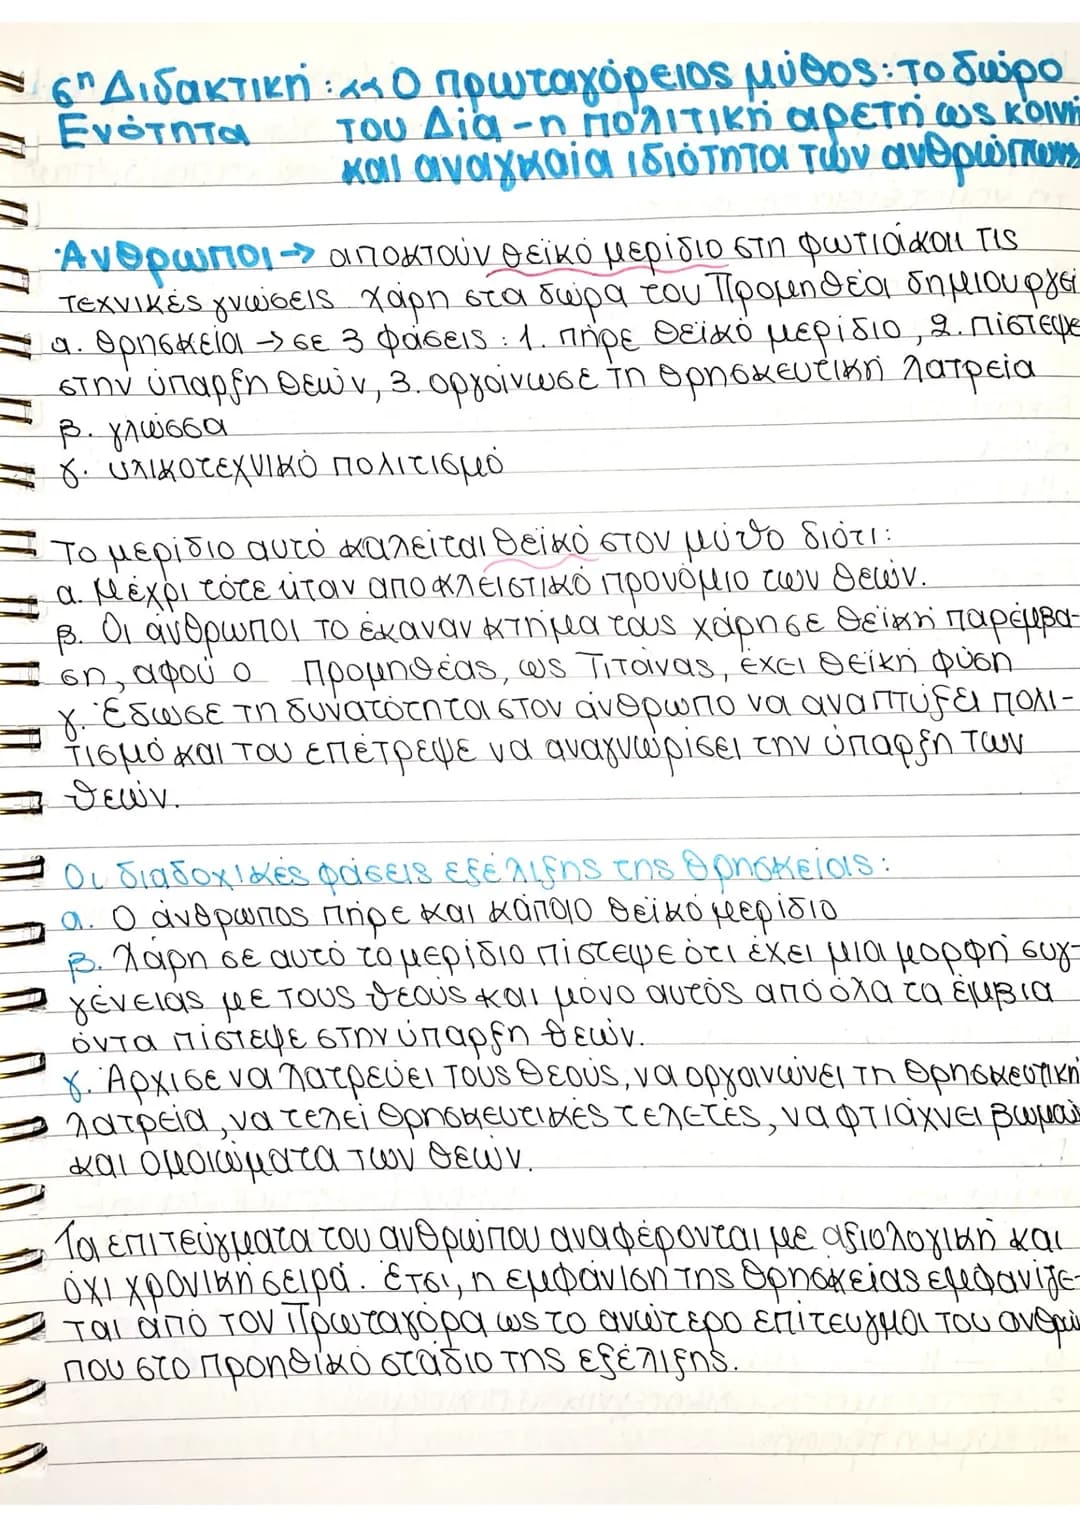 6η Διδακτική : «Ο πρωταγόρειος μύθος: το δώρο
Ενότητα του Δία - η πολιτική αρετή ως κοινή
και αναγκαία ιδιότητα των ανθρώπων»
Άνθρωποι → αποκτούν θεϊκό μερίδιο στη φωτιά και τις
τεχνικές γνώσεις. Χάρη στα δώρα του Προμηθέα δημιουργεί
α. θρησκεία → σε 3 φάσεις : 1. πήρε θεϊκό μερίδιο, 2. πίστεψε
στην ύπαρξη θεών, 3. οργάνωσε τη θρησκευτική λατρεία
β. γλώσσα
γ. υλικοτεχνικό πολιτισμό
Το μερίδιο αυτό καλείται θεϊκό στον μύθο διότι:
α. Μέχρι τότε ήταν αποκλειστικό προνόμιο των θεών.
β. Οι άνθρωποι το έκαναν κτήμα τους χάρησε θεϊκή παρέμβα-
ση, αφού ο Προμηθέας, ως Τιτάνας, έχει θεϊκή φύση
γ. Έδωσε τη δυνατότητα στον άνθρωπο να αναπτύξει πολι-
τισμό και του επέτρεψε να αναγνωρίσει την ύπαρξη των
θεών.
Οι διαδοχικές φάσεις εξέλιξης της θρησκείας:
α. Ο άνθρωπος πήρε και κάποιο θεϊκό μερίδιο
β. Χάρη σε αυτό το μερίδιο πίστεψε ότι έχει μια μορφή συγ-
γένειας με τους θεούς και μόνο αυτός από όλα τα έμβια
όντα πίστεψε στην ύπαρξη θεών.
γ. Άρχισε να λατρεύει τους θεούς, να οργανώνει τη θρησκευτική
λατρεία, να τελεί θρησκευτικές τελετές, να φτιάχνει βωμούς
και ομοιώματα των θεών.
Τα επιτεύγματα του ανθρώπου αναφέρονται με αξιολογική και
όχι χρονική σειρά. Έτσι, η εμφάνιση της θρησκείας εμφανίζε-
ται από τον Πρωταγόρα ως το ανώτερο επίτευγμα του ανθρώ
που στο προηθικό στάδιο της εξέλιξης.